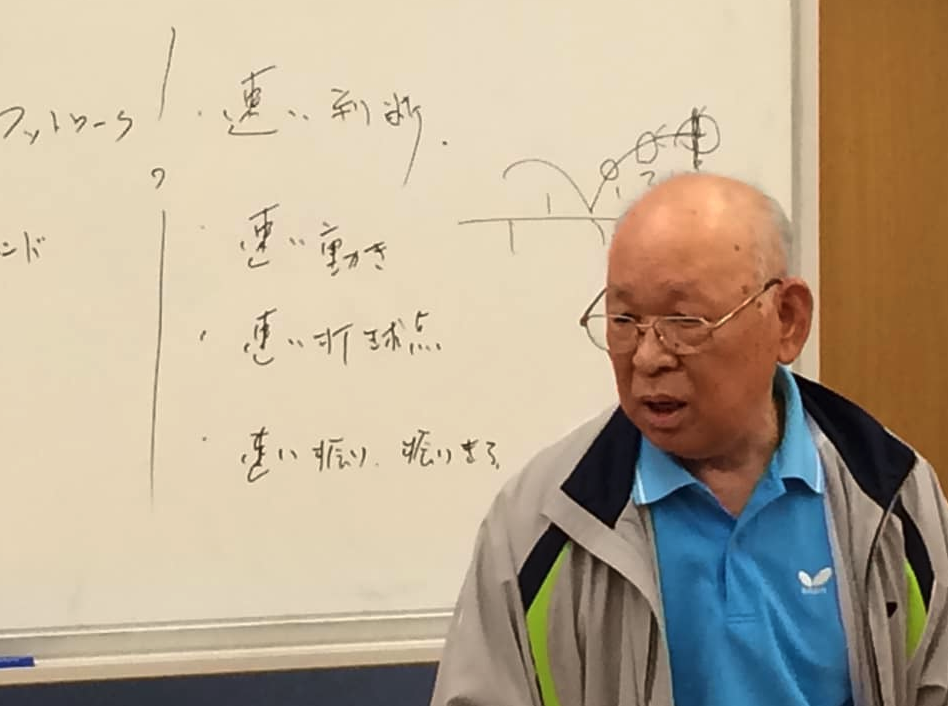 フットワーク
・速い判断.
ンド
・速い動き
・速い打球点
・速い振り、振りきる
1 1 2